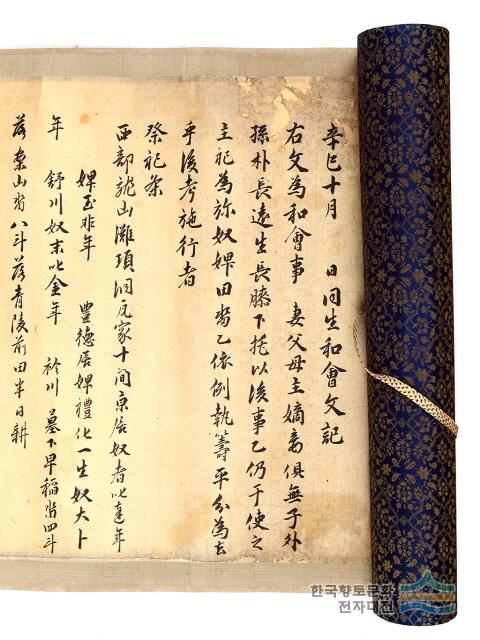 辛巳十月 日同生和會文記
右文爲和會事 妻父母主嫡妾俱無子外
孫朴長遠生長膝下托以後事乙仍于使之
主祀爲旀奴婢田畓乙依例執籌平分爲去
乎後考施行者
祭祀条
西部龍山灘項洞瓦家十間京居奴者叱達年
婢玉非年 豊德居婢禮化一生奴大卜
年 舒川奴末叱金年 衿川墓下早稻畓四斗
落 案山畓八斗落靑陵前田半日耕
한국향토문화
전자대전